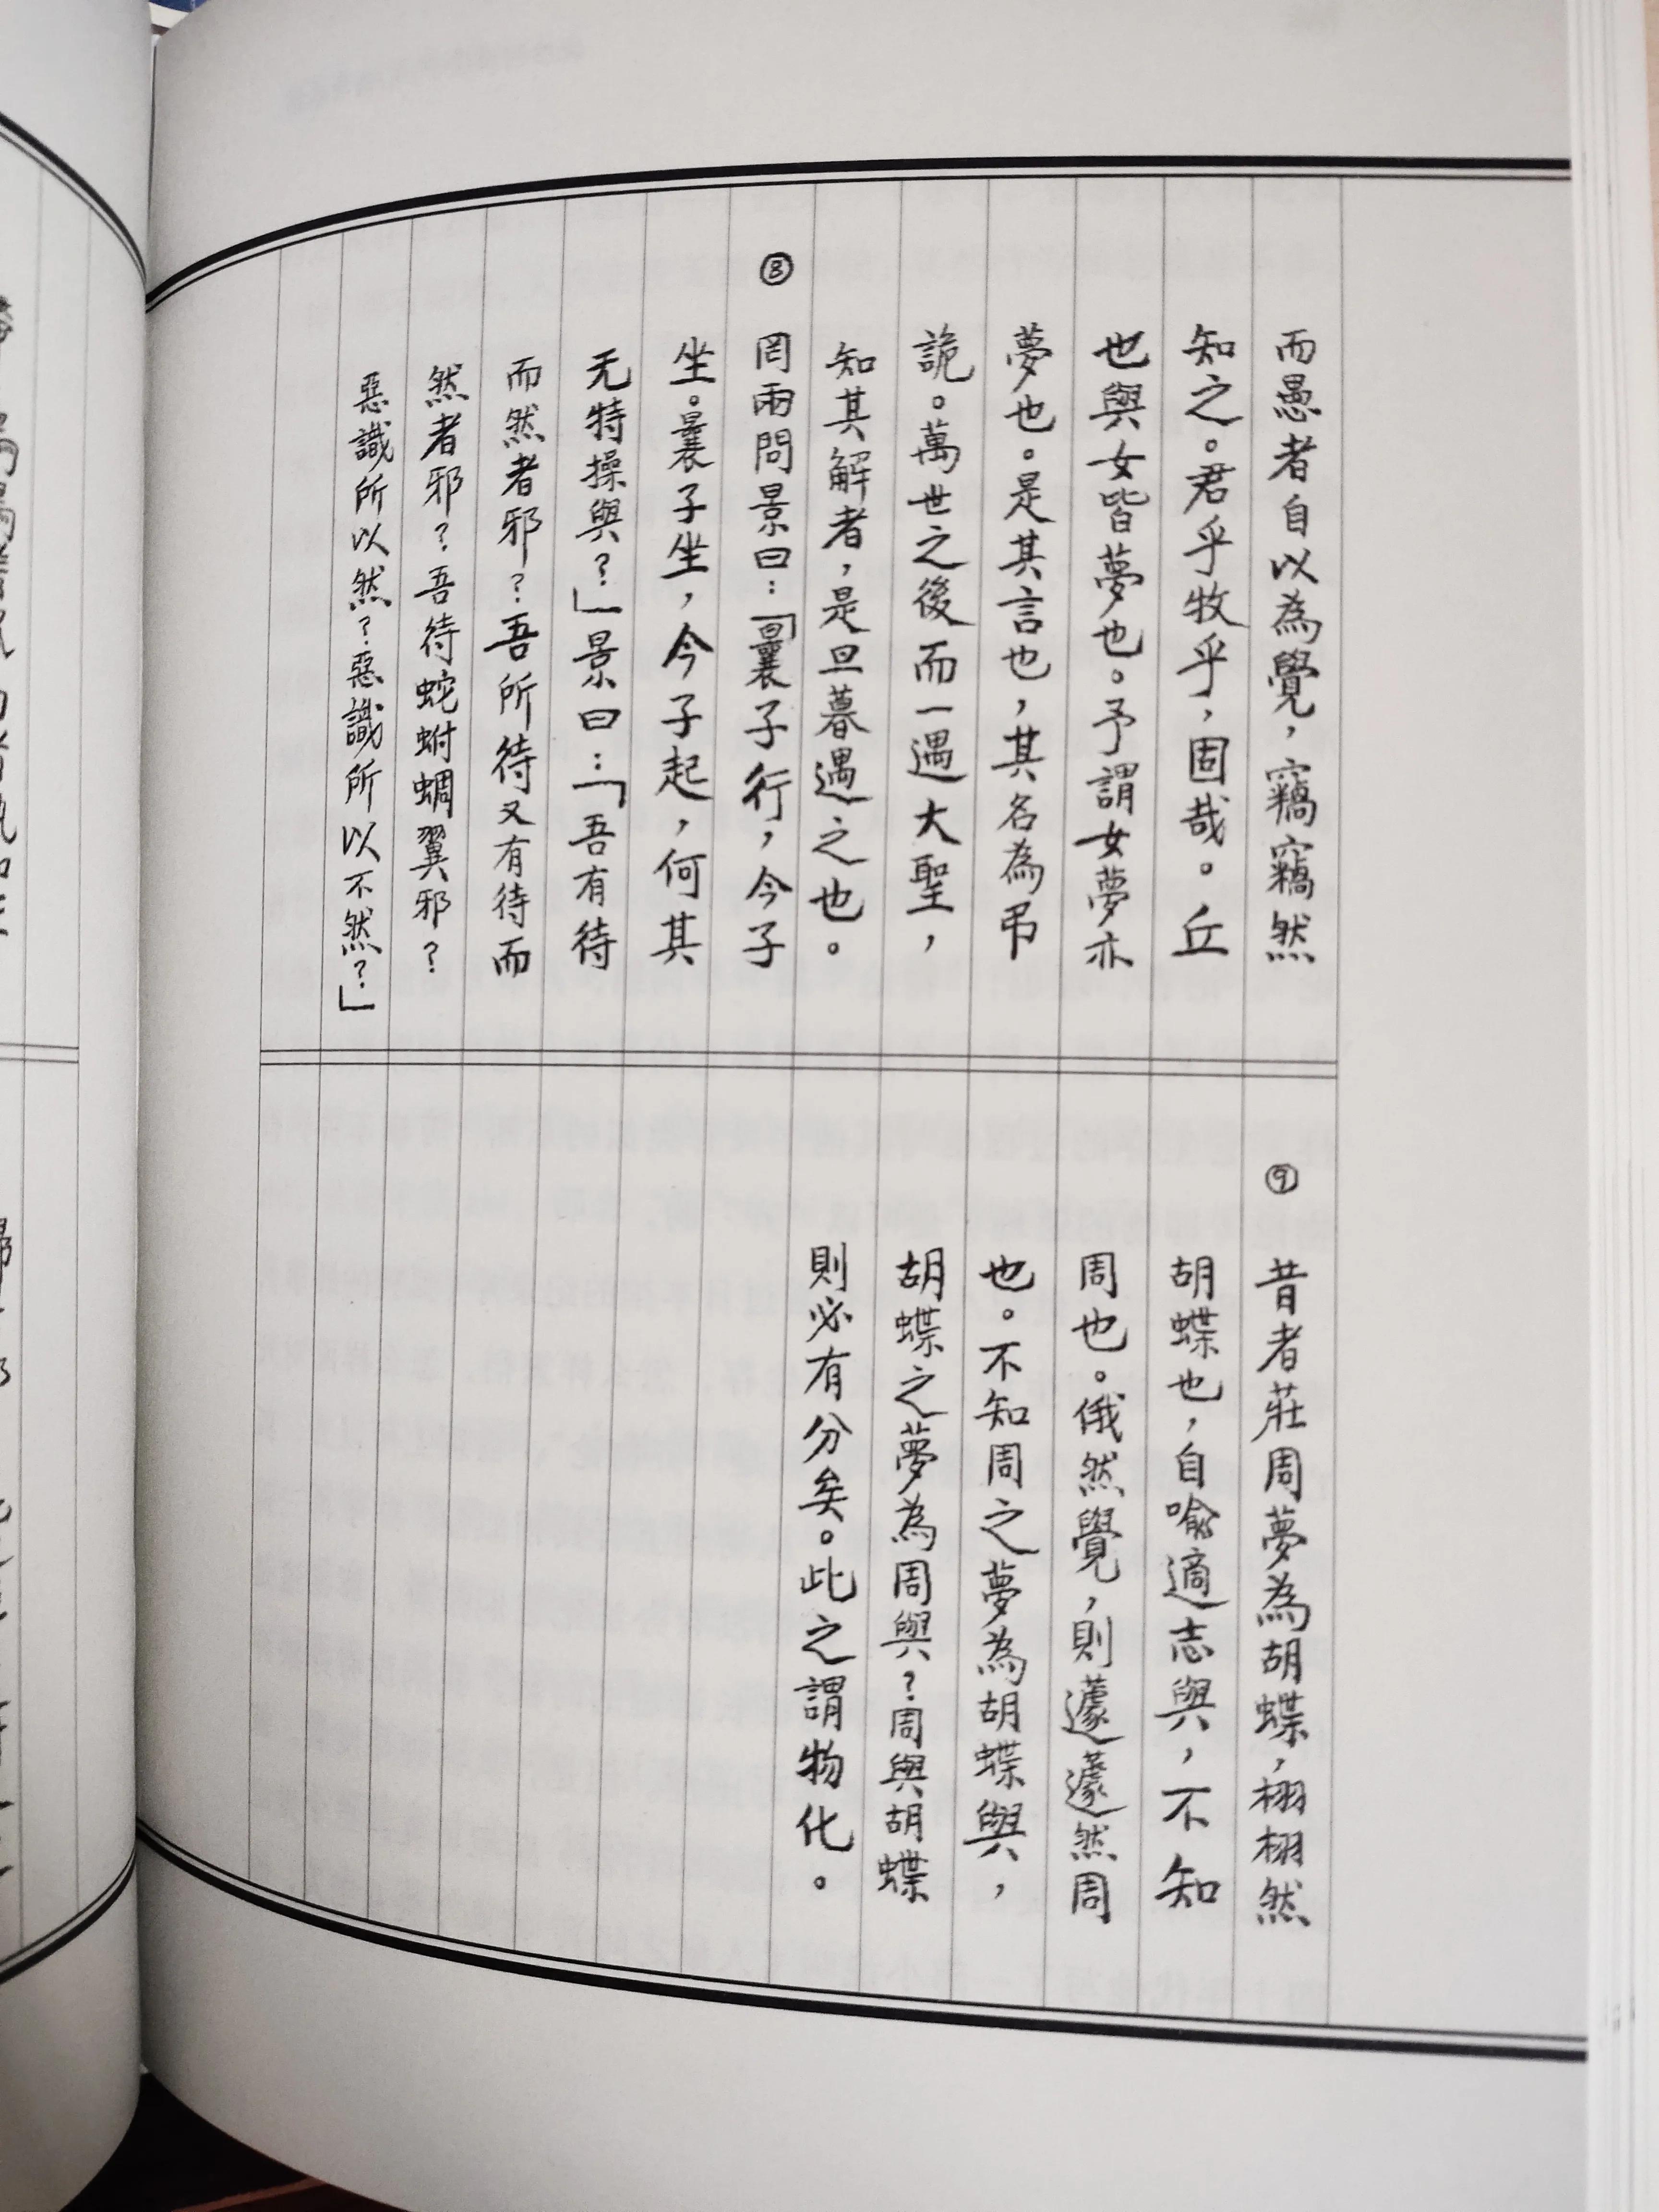 而愚者自以為覺，竊竊然
知之。君乎牧乎，固哉。丘
也與女皆夢也。予謂女夢亦
夢也。是其言也，其名為弔
詭。萬世之後而一遇大聖，
知其解者，是旦暮遇之也。
⑧罔兩問景曰：「曩子行，今子
坐。曩子坐，今子起，何其
无特操與？」景曰：「吾有待
而然者邪？吾所待又有待而
然者邪？吾待蛇蚹蜩翼邪？
惡識所以然？惡識所以不然？」
⑨昔者莊周夢為胡蝶，栩栩然
胡蝶也，自喻適志與，不知
周也。俄然覺，則蘧蘧然周
也。不知周之夢為胡蝶與，
胡蝶之夢為周與？周與胡蝶
則必有分矣。此之謂物化。